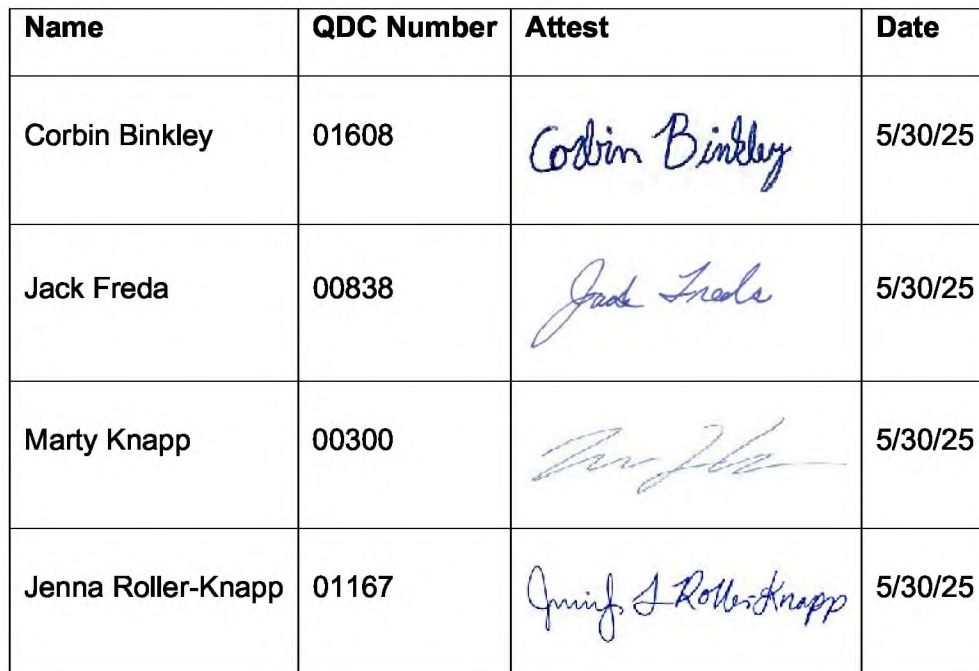 Name QDC Number Attest Date
Corbin Binkley 01608 Corbin Binkley 5/30/25
Jack Freda 00838 Jack Freda 5/30/25
Marty Knapp 00300 5/30/25
Jenna Roller-Knapp 01167 L Roller-Knapp 5/30/25